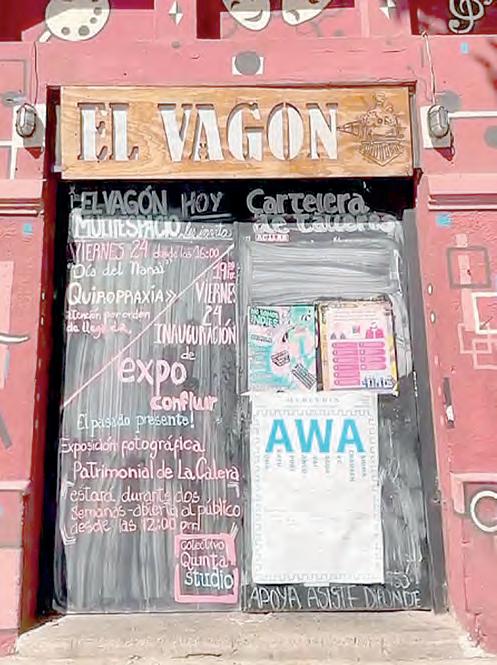 EL VAGON
ELVAGÓN HOY
MULTIESPACIO les invita
VIERNES 24 desde las 16:00
"Día del Nanai"
QUIROPRAXIA>>
atención por orden
de llegada
19:00
VIERNES
24
INAUGURACIÓN
de
expo
confluir
El pasado presente!
Exposición fotográfica
Patrimonial de La Calera
estará durante dos
semanas abierta al público
desde las 12:00 pm
colectivo
Quinta
studio
Cartelera
de talleres
AWA
APOYA ASISTE DIFUNDE